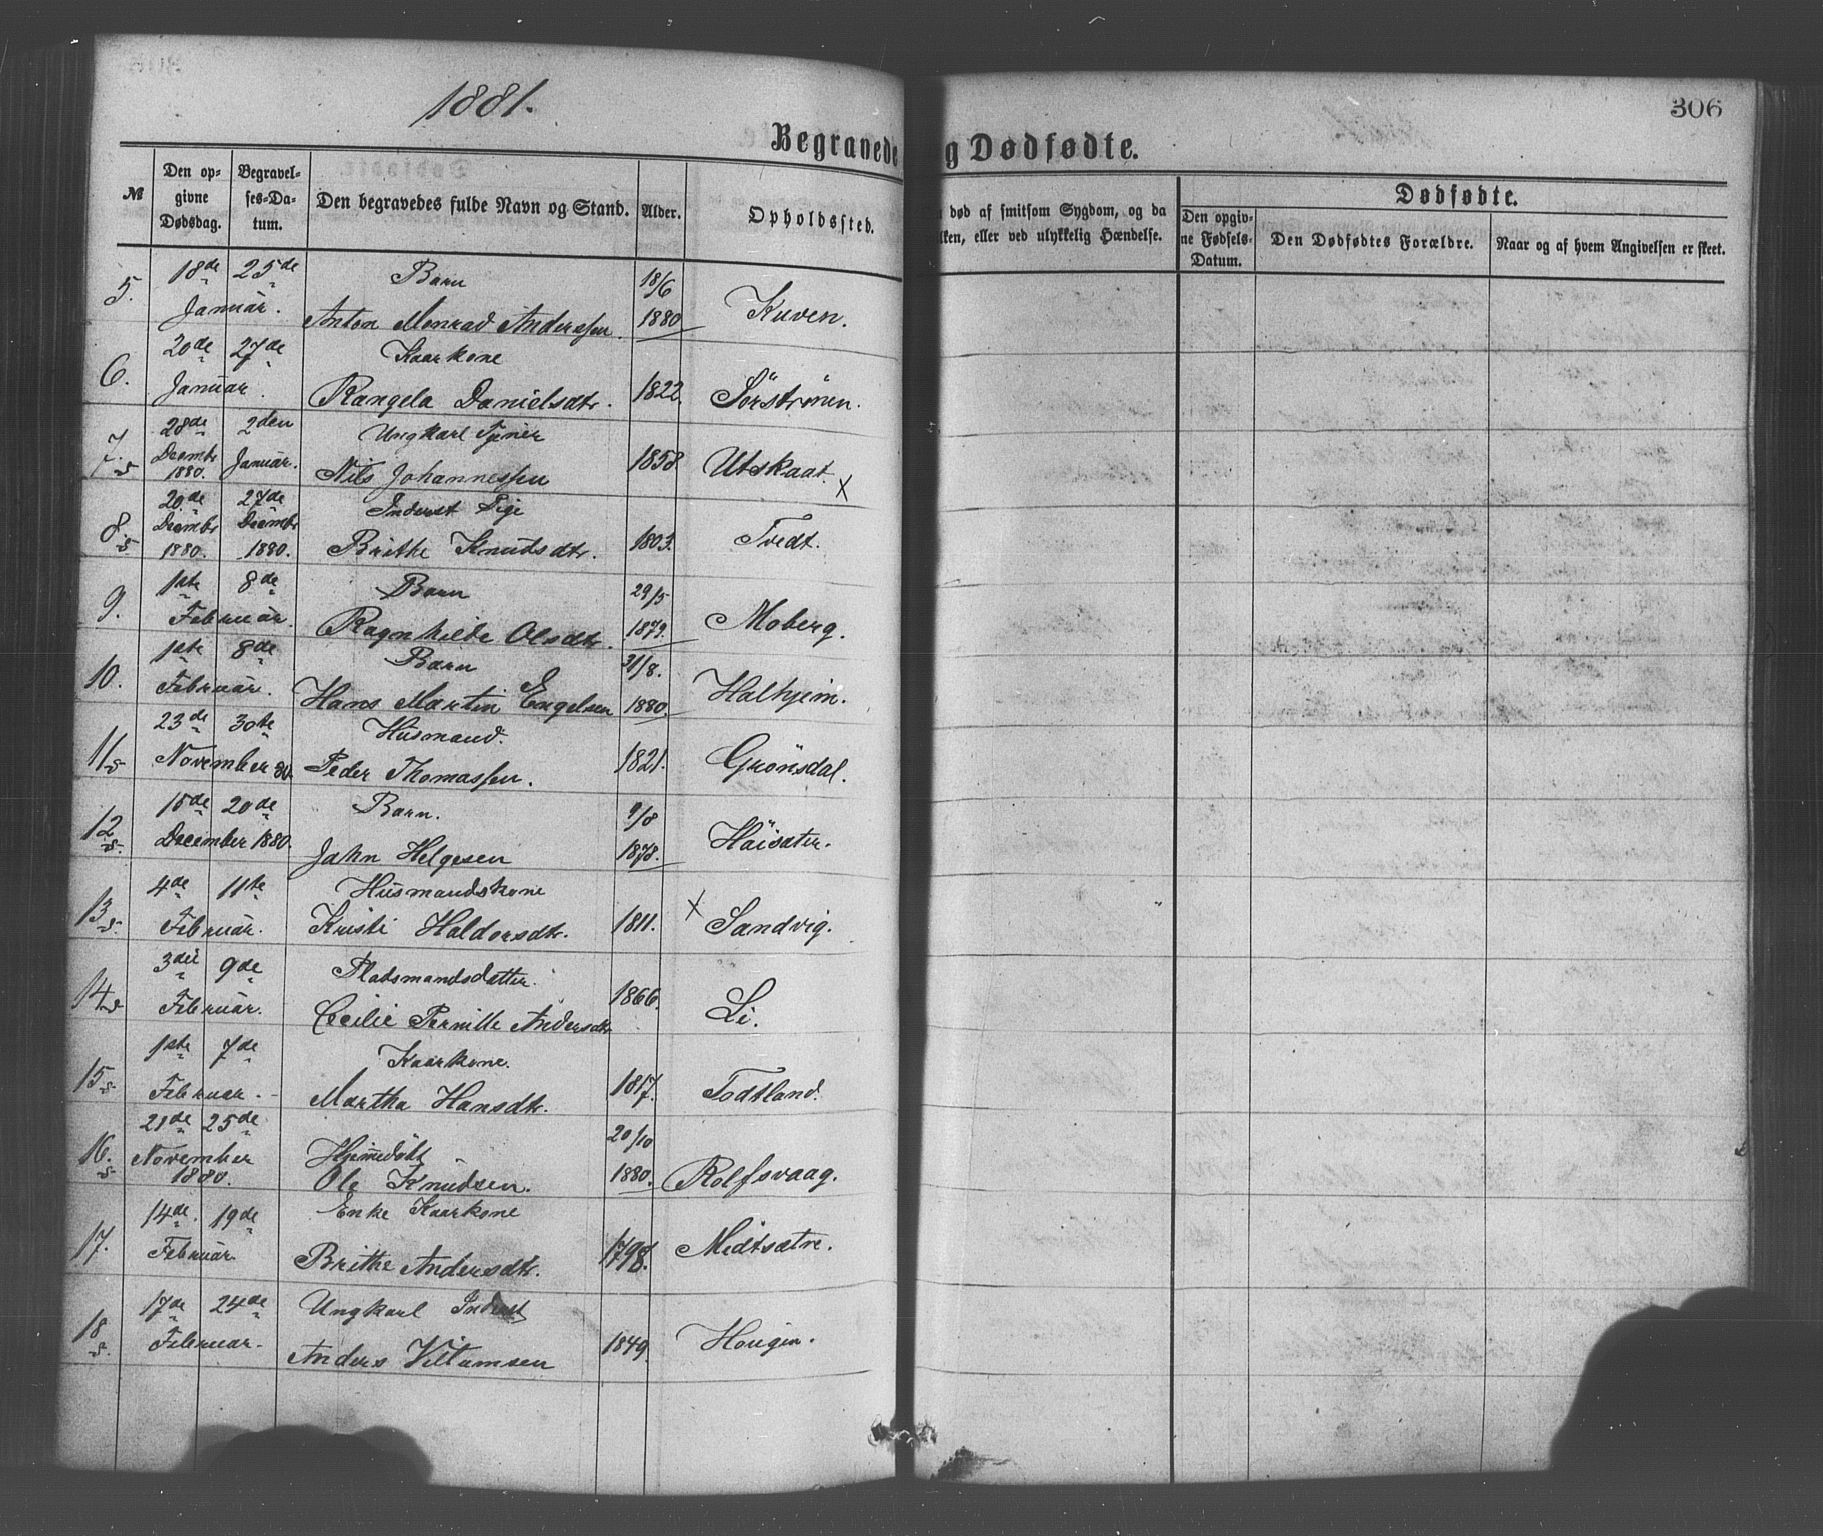 1881.
306
Begravede
g Dødfødte.
№
Den op-
givne
Dødsdag.
Begravel-
ses-Da-
tum.
Den begravedes fulde Navn og Stand.
Alder.
Opholdssted.
død af smitsom Sygdom, og da
lken, eller ved ulykkelig Hændelse.
Dødfødte.
Den opgiv-
ne Fødsels-
Datum.
Den Dødfødtes Forældre.
Naar og af hvem Angivelsen er skeet.
18de 25de Barn 18/6
5. Januar. Anton Monrad Anderssen. 1880 Kuven.
20de 27de Kaarkone
6. Januar. Rangela Danielsdtr. 1822. Sörströnen.
28de 2den Ungkarl Tjener
7. Decembr Januar. 1858. Utskaat. X
s 1880. Nils Johannessen
20de 27de Inderst Pige
8. Decembr Decembr 1803. Tvedt.
s 1880. 1880. Brithe Knudsdtr.
1ste 8de Barn 29/5
9. Februar. Ragnhilde Olsdtr. 1879. Moberg.
1ste 8de Barn 21/8.
10. Februar. Hans Martin Engelsen 1880. Halhjem.
23de 30te Husmand.
11 s November 80. Peder Thomassen. 1821. Grönsdal.
15de 20de Barn. 9/8
12 s. December 1880. Jahn Helgesen 1878. Höisæter.
4de 11te Husmandskone
13 s. Februar. Kristi Haldorsdtr. 1811. X Sandvig.
3die 9de Pladsmandsdatter.
14 s Februar. Cecilie Pernille Andersdtr 1866. Li.
1ste 7de Kaarkone.
15 s Februar. Martha Hansdtr. 1817. Todtland.
21de 25de 20/10
16. November Hjemmedöbt
s 1880. Ole Knudsen. 1880. Rolfsvaag.
14de. 19de Enke Kaarkone
17. Februar. Brithe Andersdtr. 1798. Midtsætre.
17de 24de Ungkarl Inderst
18 s. Februar. Anders Viltumsen 1849. Hougen.